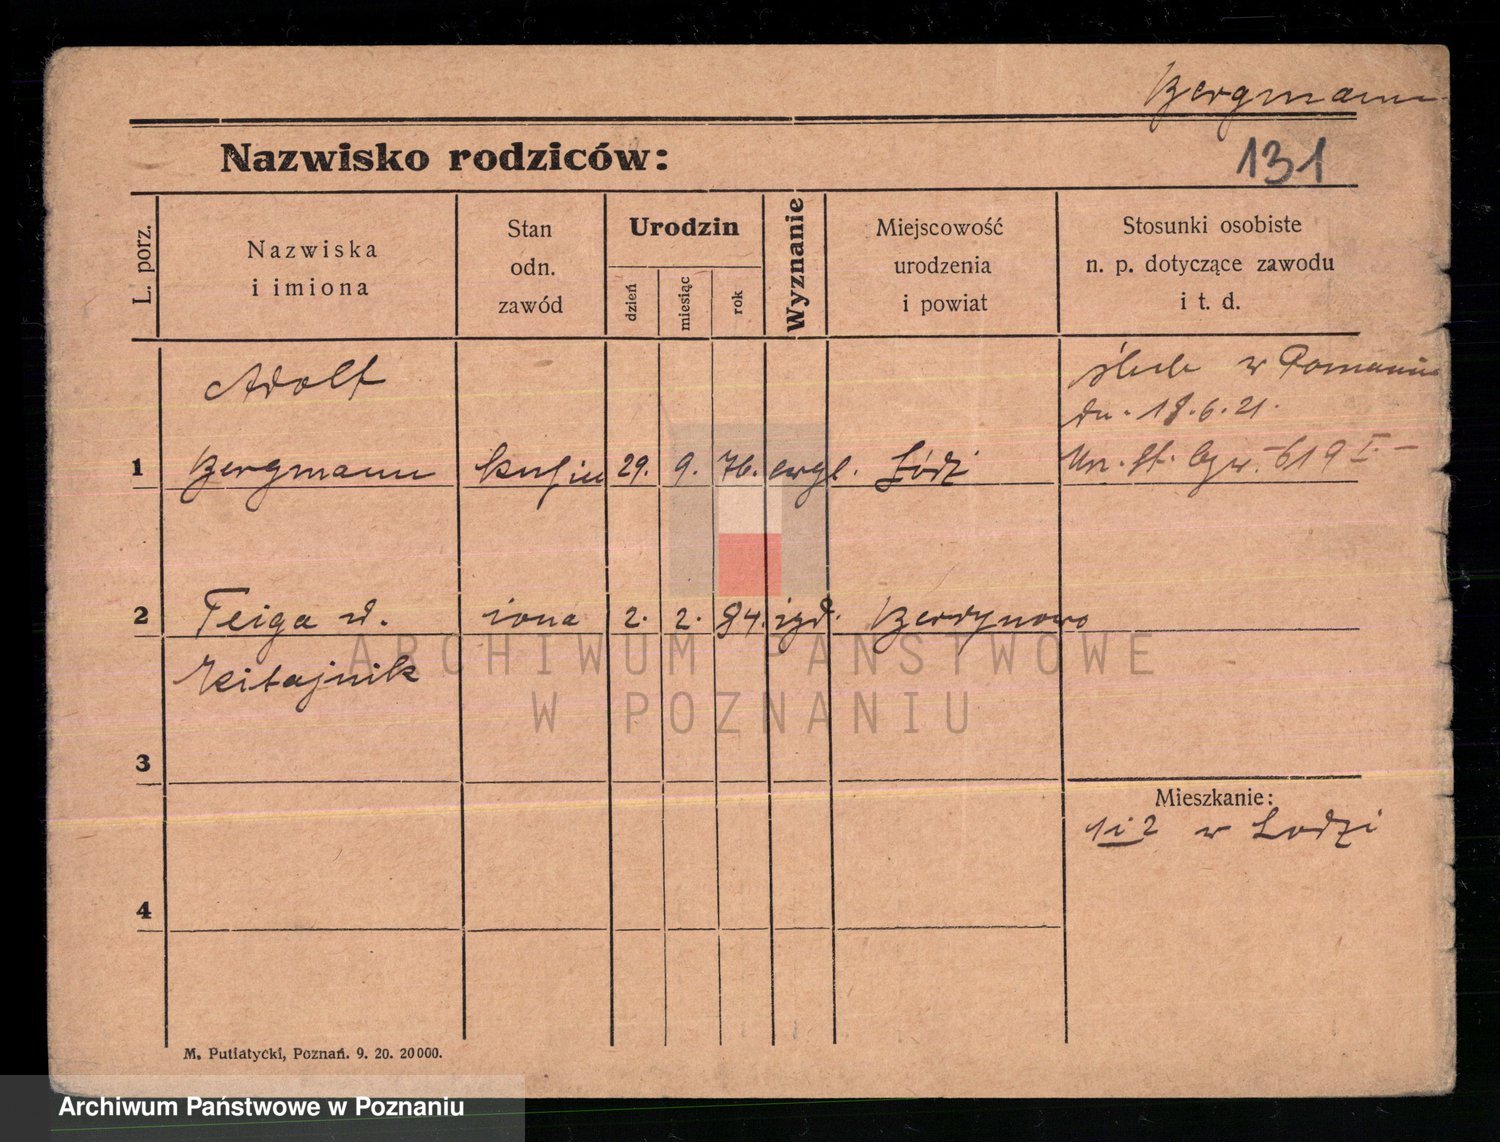 Bergmann
Nazwisko rodziców:
131
L. porz.
Nazwiska
i imiona
Stan
odn.
zawód
Urodzin
dzień
miesiąc
rok
Wyznanie
Miejscowość
urodzenia
i powiat
Stosunki osobiste
n. p. dotyczące zawodu
i t. d.
Adolf
w Poznaniu
dn. 18.6.21.
1 Bergmann 29. 9. 76. ewgl. Łódź
Un. st. 619 I.
2 Feiga żona 2. 2. 84. izd. Berdynowo
Kitajnik
3
Mieszkanie:
1 i 2 w Łodzi
4
M. Putiatycki, Poznań. 9. 20. 20000.
ARCHIWUM PAŃSTWOWE
W POZNANIU
Archiwum Państwowe w Poznaniu